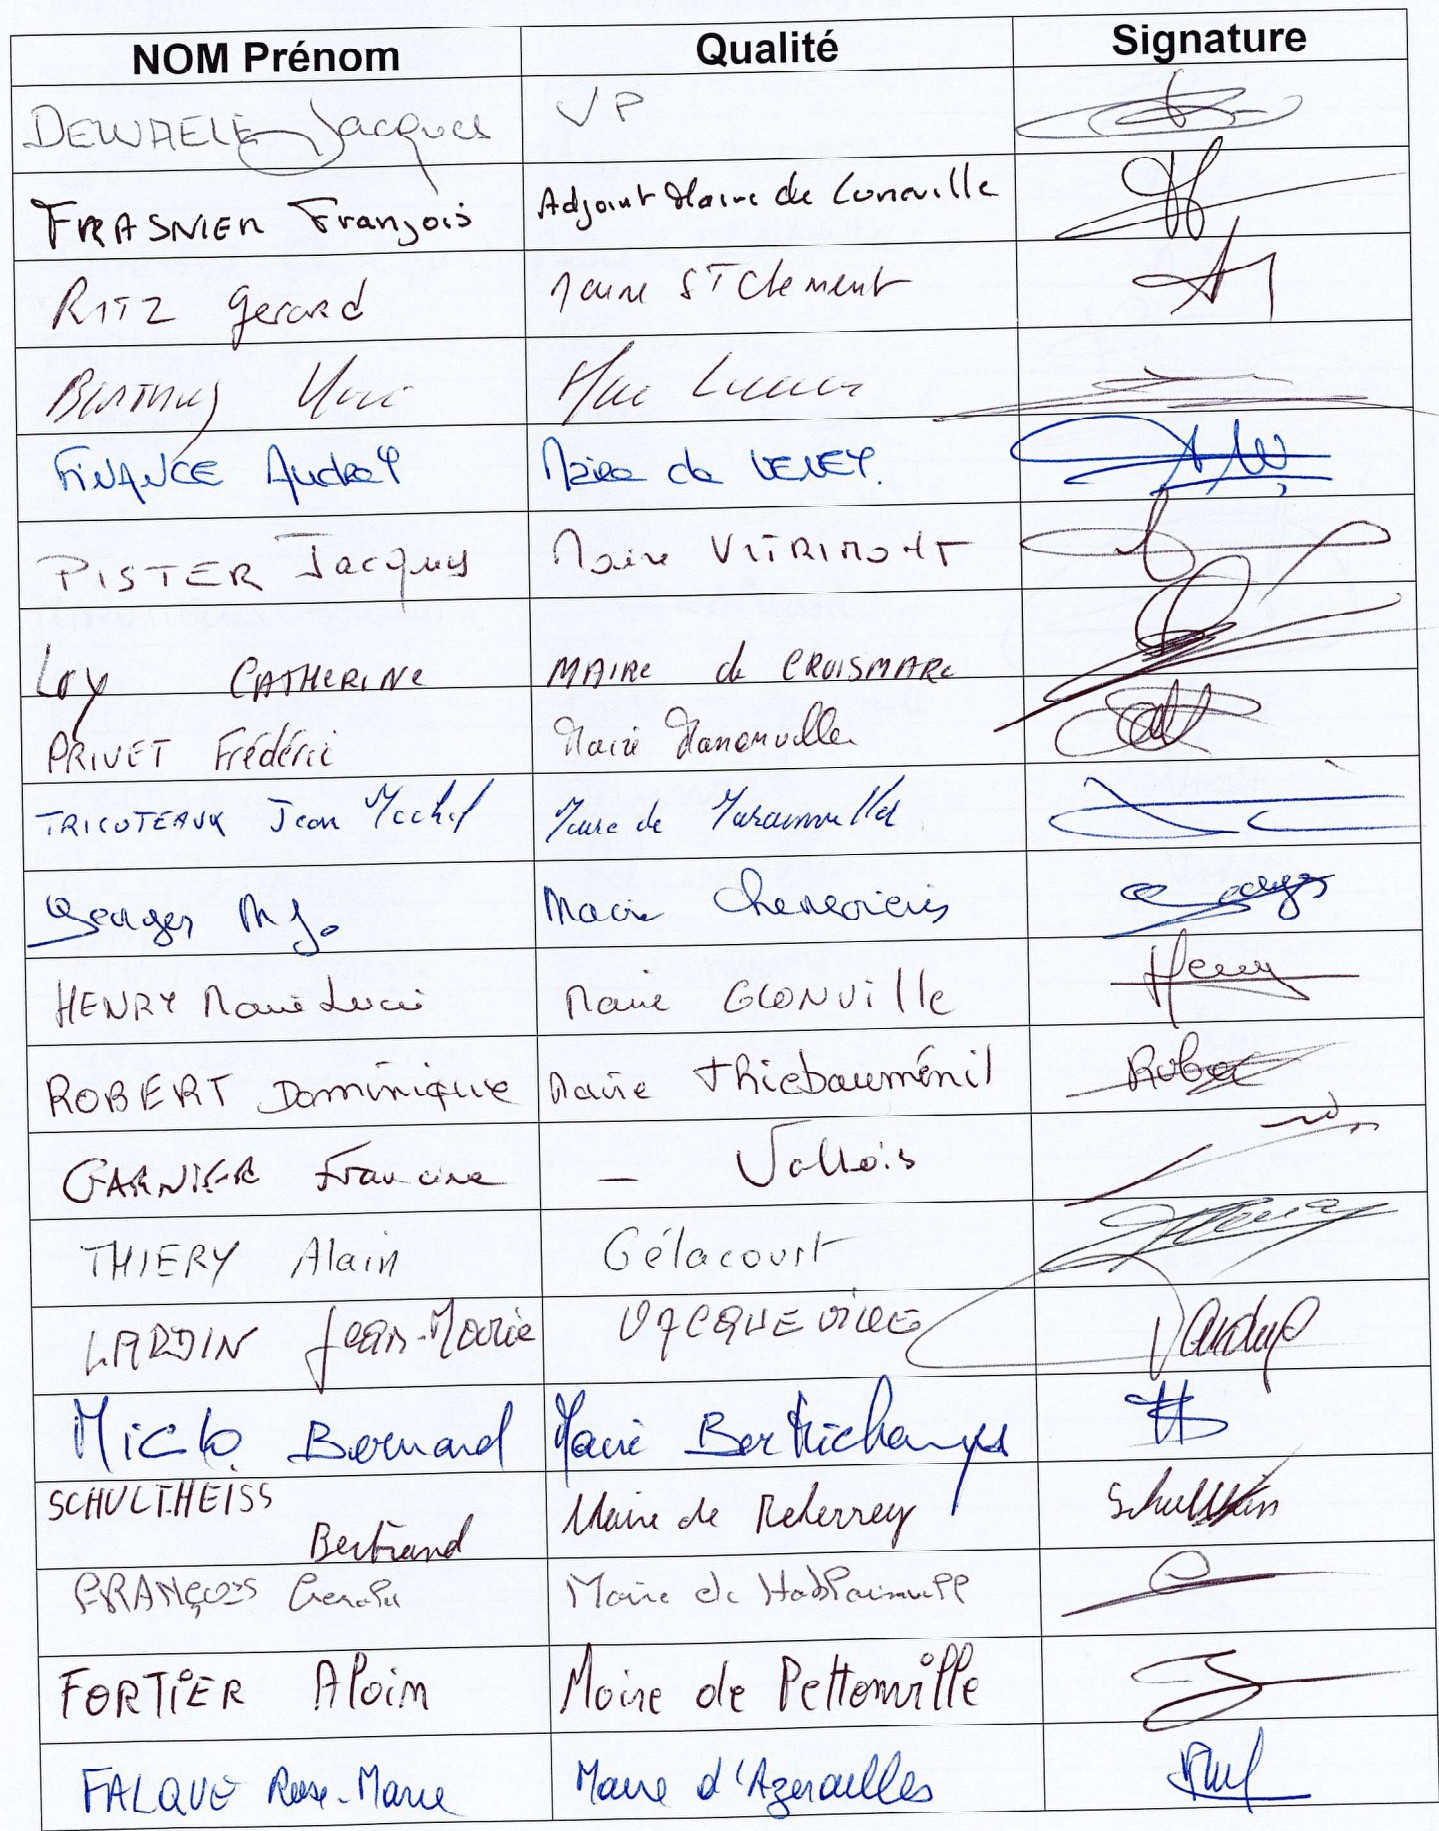 NOM Prénom Qualité Signature
DEWAELE Jacques VP
FRASNIER François Adjoint Maire de Luneville
RITZ Gerard Maire ST Clement
FINANCE Audrey Maire de VENEY.
PISTER Jacques Maire VITRIMONT
LOY CATHERINE MAIRE de CROISMARE
PRIVET Frédéric Maire Manonviller
TRICOTEAUX Jean Michel Maire de Marainviller
Georges M J. Maire Chenevières
HENRY Marie Lucie Maire GLONVille Henry
ROBERT Dominique Maire Thiébauménil Robert
GARNIER Francine — Vallois
THIERY Alain Gélacourt
LARDIN Jean-Marie VACQUEVILLE
Miclo Bernard Maire Bertrichamps
SCHULTHEISS Bertrand Maire de Reherrey
FRANÇOIS Gerald Maire de Hablainville
FORTIER Alain Maire de Pettonville
FALQUE Rose-Marie Maire d'Azerailles